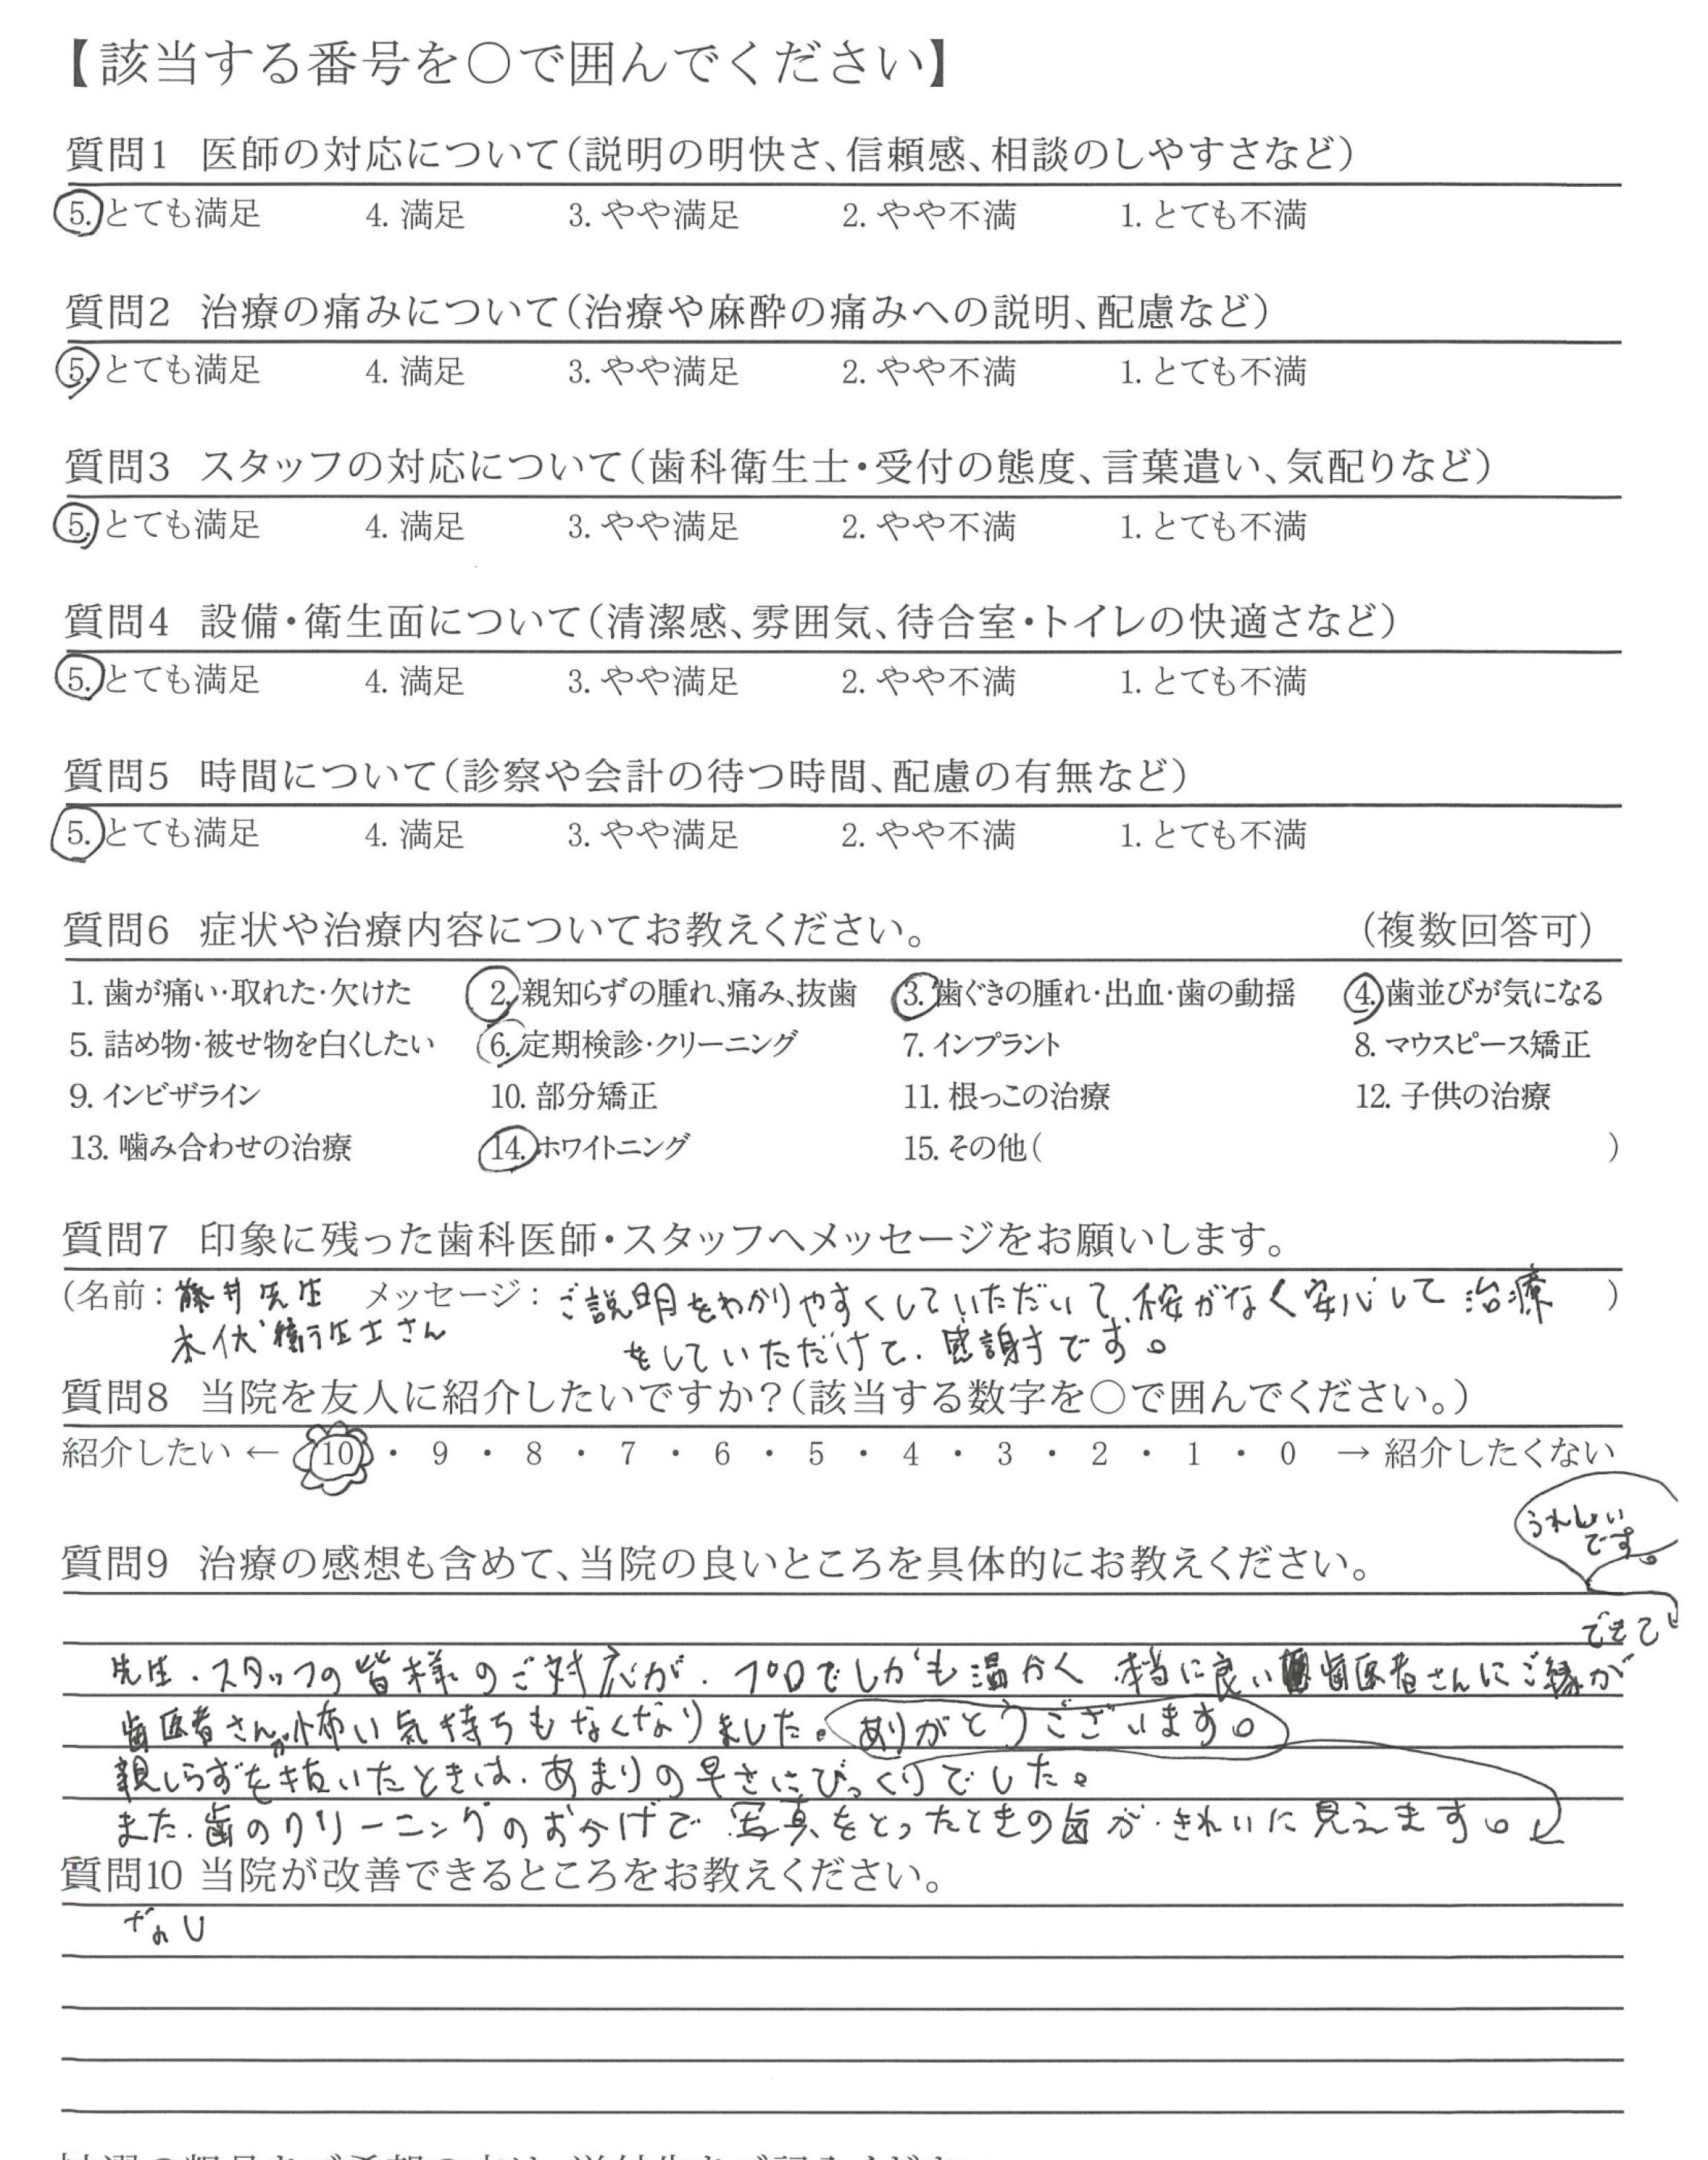 【該当する番号を○で囲んでください】
質問1 医師の対応について(説明の明快さ、信頼感、相談のしやすさなど)
5. とても満足 4. 満足 3. やや満足 2. やや不満 1. とても不満
質問2 治療の痛みについて(治療や麻酔の痛みへの説明、配慮など)
5. とても満足 4. 満足 3. やや満足 2. やや不満 1. とても不満
質問3 スタッフの対応について(歯科衛生士・受付の態度、言葉遣い、気配りなど)
5. とても満足 4. 満足 3. やや満足 2. やや不満 1. とても不満
質問4 設備・衛生面について(清潔感、雰囲気、待合室・トイレの快適さなど)
5. とても満足 4. 満足 3. やや満足 2. やや不満 1. とても不満
質問5 時間について(診察や会計の待つ時間、配慮の有無など)
5. とても満足 4. 満足 3. やや満足 2. やや不満 1. とても不満
質問6 症状や治療内容についてお教えください。 (複数回答可)
1. 歯が痛い・取れた・欠けた 2. 親知らずの腫れ、痛み、抜歯 3. 歯ぐきの腫れ・出血・歯の動揺 4. 歯並びが気になる
5. 詰め物・被せ物を白くしたい 6. 定期検診・クリーニング 7. インプラント 8. マウスピース矯正
9. インビザライン 10. 部分矯正 11. 根っこの治療 12. 子供の治療
13. 噛み合わせの治療 14. ホワイトニング 15. その他( )
質問7 印象に残った歯科医師・スタッフへメッセージをお願いします。
(名前: 藤井先生 メッセージ: ご説明をわかりやすくしていただいて、不安がなく安心して治療 )
木伏衛生士さん をしていただけて、感謝です。
質問8 当院を友人に紹介したいですか?(該当する数字を○で囲んでください。)
紹介したい ← 10 ・ 9 ・ 8 ・ 7 ・ 6 ・ 5 ・ 4 ・ 3 ・ 2 ・ 1 ・ 0 → 紹介したくない
うれしい
です。
質問9 治療の感想も含めて、当院の良いところを具体的にお教えください。
できて
先生・スタッフの皆様のご対応が、プロでしかも温かく 本当に良い歯医者さんにご縁が
歯医者さんが怖い気持ちもなくなりました。ありがとうございます。
親しらずを抜いたときは、あまりの早さにびっくりでした。
また、歯のクリーニングのおかげで 写真をとったときの歯が、きれいに見えます。
質問10 当院が改善できるところをお教えください。
なし